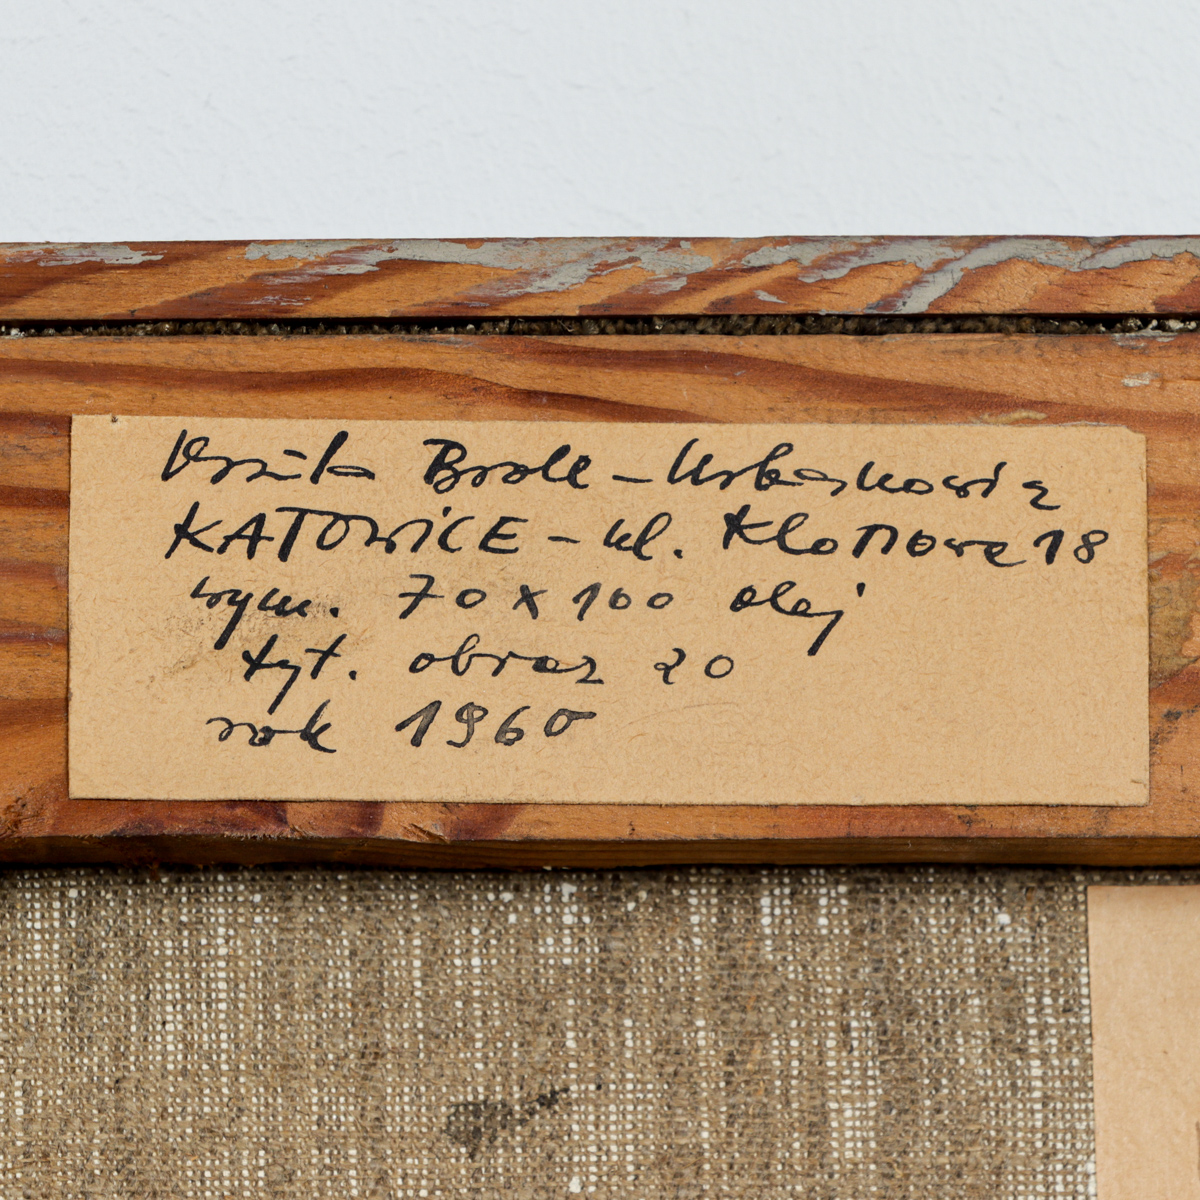 Urszula Broll – Urbanowicz
KATOWICE – ul. Klonowa 18
wym. 70 x 100 olej
tyt. obraz 20
rok 1960